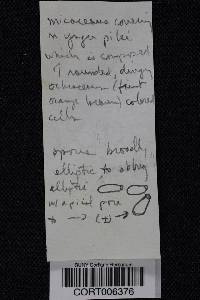 micaceous covering
n younger pilei
which is composed
of rounded, dingy
ochraceous (faint
orange brown) colored
cells
spores broadly
elliptic to oblong
elliptic
w/ apical pore
SUNY Cortland Herbarium
CORT006376